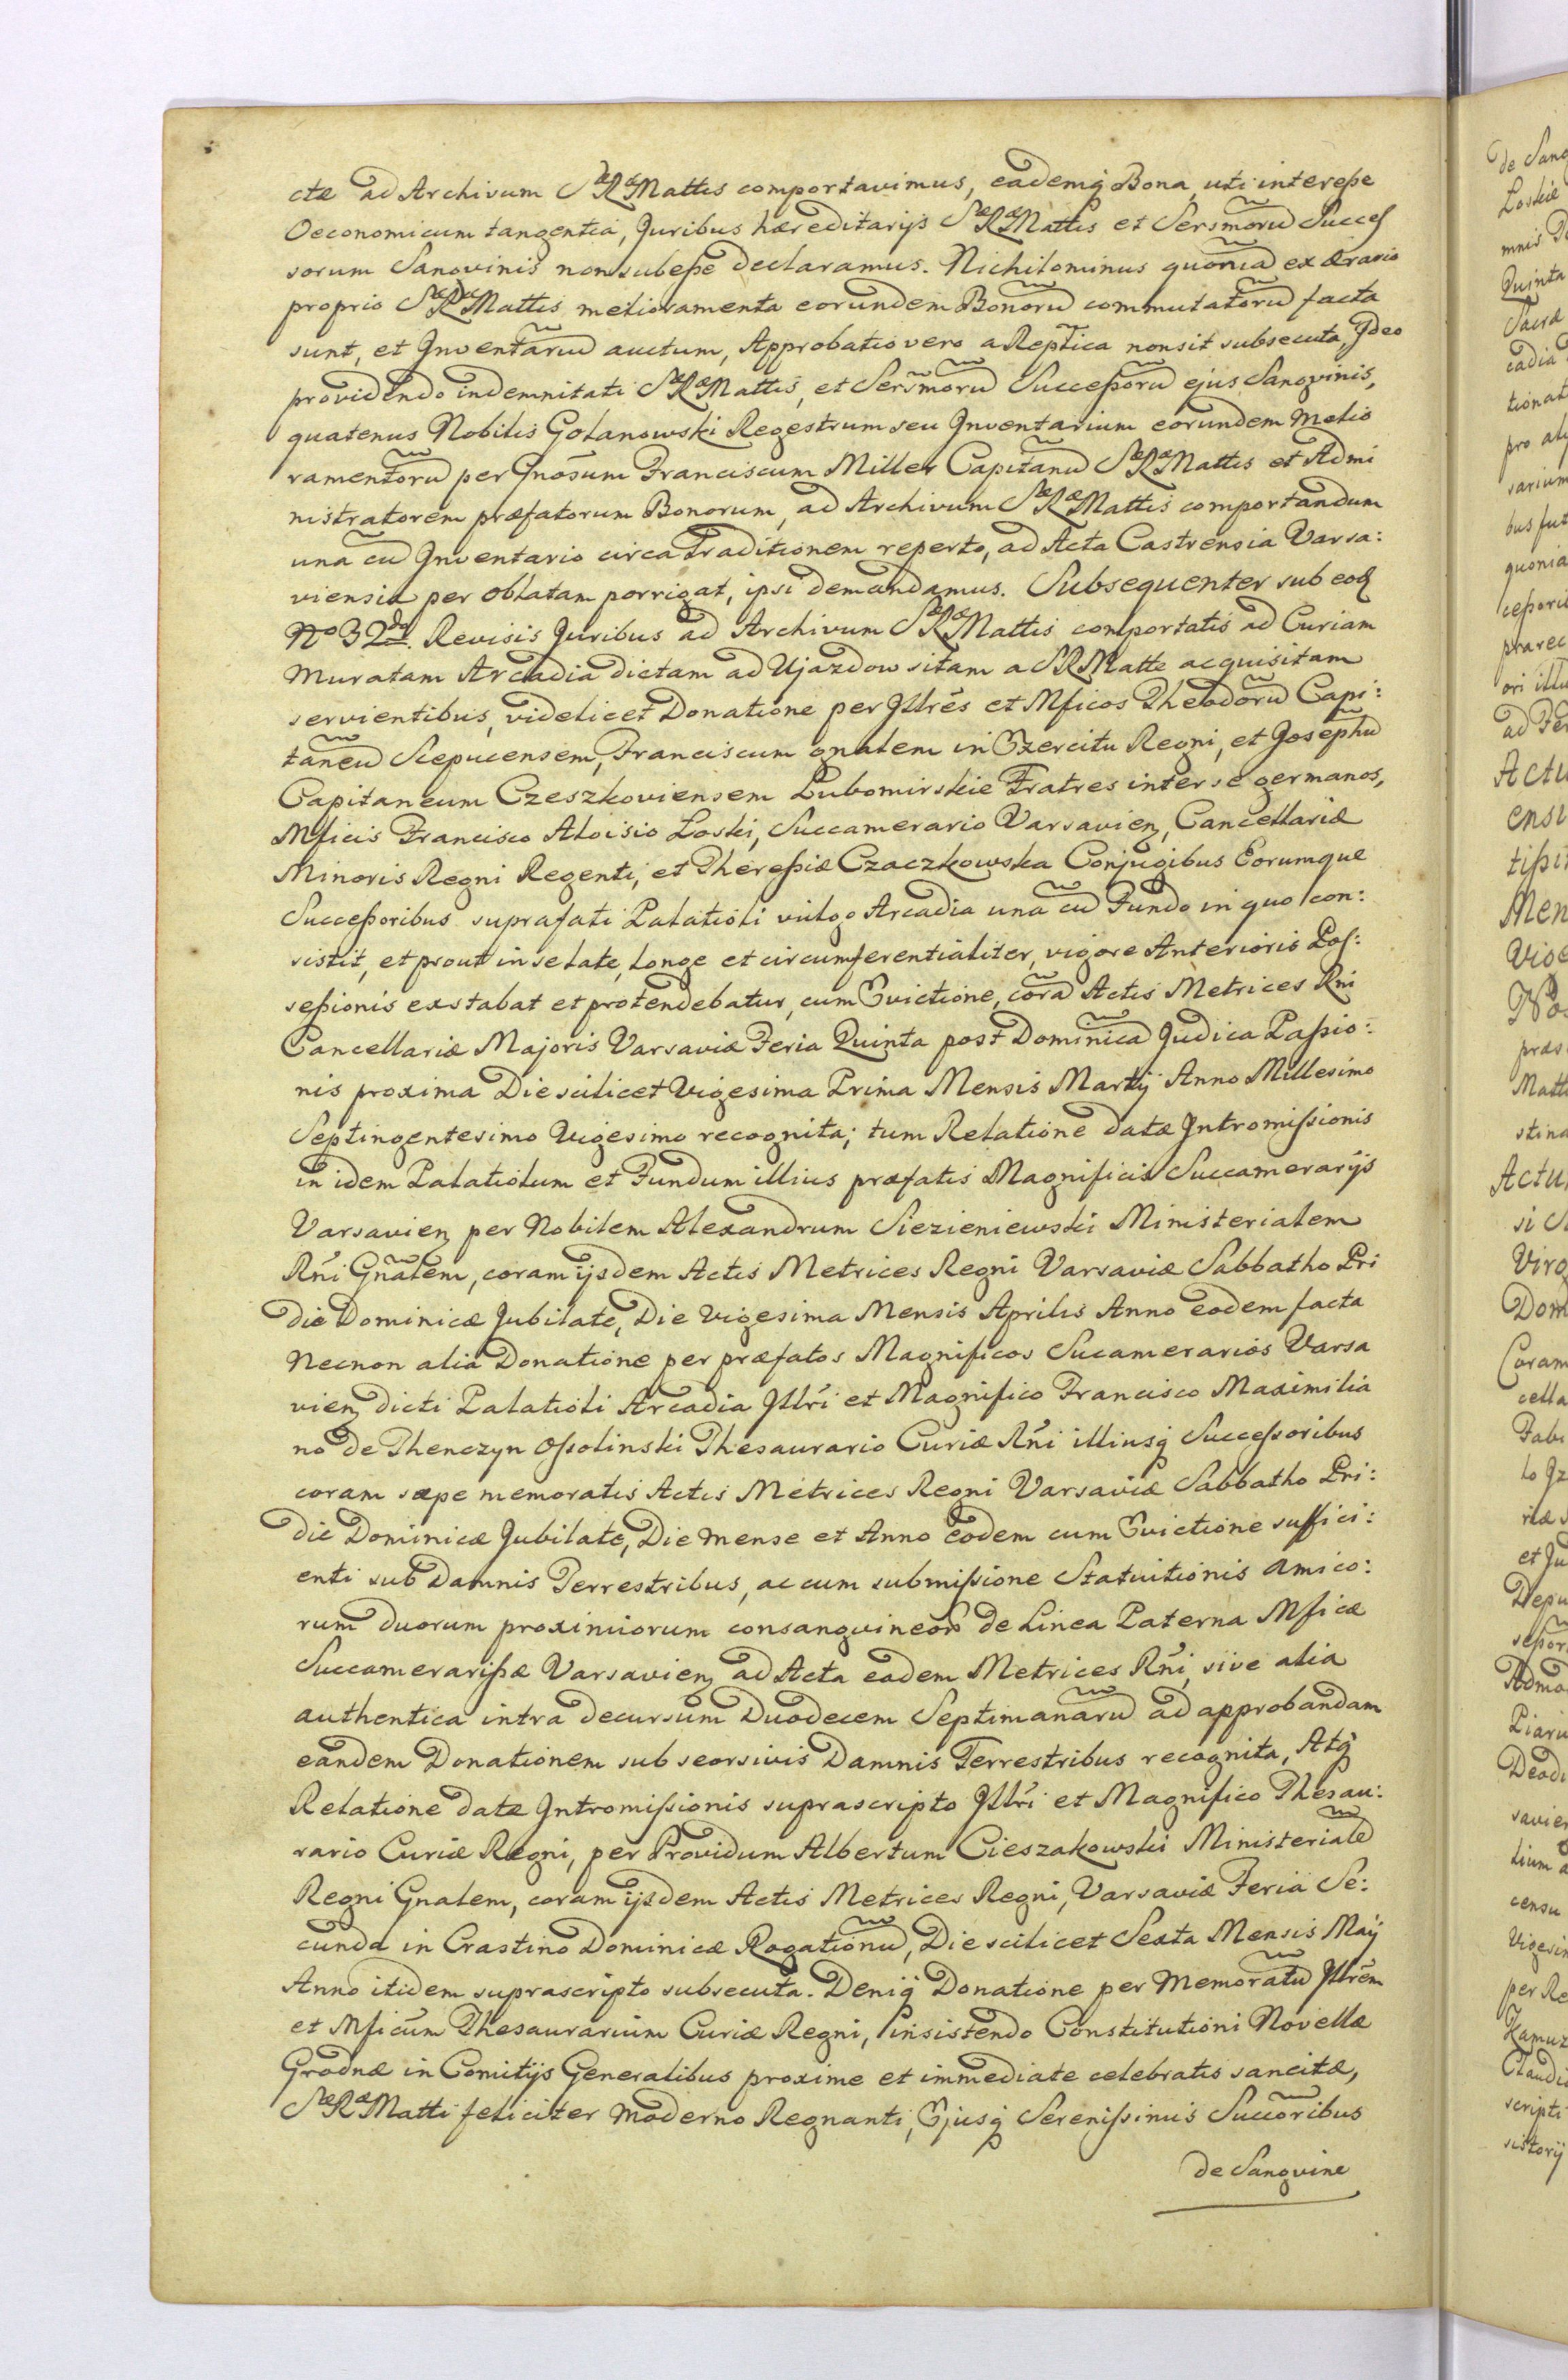 ctæ ad Archivum SæRæMattis comportavimus, eademq̃ Bona, uti interesse
Oeconomicum tangentia, Juribus hæreditarijs SæRæMattis et Sersmorũ Succes
sorum Sangvinis non subesse declaramus. Nichilominus quoniã ex Ærario
proprio SæRæMattis meliora­menta eorundem Bonorũ commutatorũ facta
sunt, et Inventariũ auctum, Approbatio vero a Reptica non sit subsecuta, Ideo
providendo indemnitati SæRæMattis, et Sersmorũ Successorũ ejus Sangvinis,
quatenus Nobilis Golanowski Regestrum seu Inventarium eorundem Melio
ramentorũ per Gnosum Franciscum Miller Capitanũ SæRæMattis et Admi
nistratorem præfatorum Bonorum, ad Archivum SæRæMattis comportandum
una cũ Inventario circa Traditionem reperto, ad Acta Castrensia Varsa:
viensia per oblatam porrigat, ipsi demandamus. Subsequenter sub eod
No 32do. Revisis Juribus ad Archivum SæRæMattis comportatis ad Curiam
Muratam Arcadia dictam ad Ujazdow sitam a SRMatte acquisitam
servientibus, videlicet Donatione per Jllrẽs et Mficos Theodorũ Capi:
taneũ Scepucensem, Franciscum gnalem in Exercitu Regni, et Josephũ
Capitaneum Czeszkoviensem Lubomirskie Fratres inter se germanos,
Mficis Francisco Aloisio Loski, Succamerario Varsavien, Cancellariæ
Minoris Regni Regenti, et Theressiæ Czaczkowska Conjugibus Eorumque
Successoribus suprafati Palatioli vulgo Arcadia una cũ Fundo in quo con:
sistit, et prout in se late, longe et circumferentialiter, vigore Anterioris Pos:
sessionis exstabat et protendebatur, cum Evictione, corã Actis Metrices Rni
Cancellariæ Majoris Varsaviæ Feria Quinta post Dominicã Judica Passio:
nis proxima Die scilicet Vigesima Prima Mensis Martij Anno Millesimo
Septingentesimo Vigesimo recognita; tum Relatione datæ Intromissionis
in idem Palatiolum et Fundum illius præfatis Magnificis Succamerarijs
Varsavien per Nobilem Alexandrum Siezieniewski Ministerialem
Rñi Gñalem, coram ijsdem Actis Metrices Regni Varsaviæ Sabbatho Pri
die Dominicæ Jubilate, Die Vigesima Mensis Aprilis Anno eodem facta
Necnon alia Donatione per præfatos Magnificos Sucamerarios Varsa
vien dicti Palatioli Arcadia Jllri et Magnifico Francisco Maximilia
no de Thenczyn Ossolinski Thesaurario Curiæ Rñi illiusq̃ Successoribus
coram sæpe memoratis Actis Metrices Regni Varsaviæ Sabbatho Pri:
die Dominicæ Jubilate, Die mense et Anno eodem cum Evictione suffici:
enti sub Damnis Terrestribus, ac cum submissione Statuitionis Amico:
rum duorum proximiorum consangvineorũ de Linea Paterna Mficæ
Succamerarissæ Varsavien ad Acta eadem Metrices Rñi, sive alia
authentica intra decursum Duodecem Septimanarũ ad approbandam
eandem Donationem sub seorsivis Damnis Terrestribus recognita, Atq̃
Relatione datæ Intromissionis suprascripto Jllri et Magnifico Thesau:
rario Curiæ Regni, per Providum Albertum Cieszakowski Ministerialẽ
Regni Gnalem, coram ijsdem Actis Metrices Regni, Varsaviæ Feria Se:
cunda in Crastino Dominicæ Rogationũ, Die scilicet Sexta Mensis Maij
Anno itidem suprascripto subsecuta. Deniq̃ Donatione per Memoratũ Jllrẽm
et Mficum Thesaurarium Curiæ Regni, insistendo Constitutioni Novellæ
Grodnæ in Comitijs Generalibus proxime et immediate celebratis sancitæ,
SæRæMatti feliciter moderno Regnanti, Ejusq̃ Serenissimis Succoribus
de Sangvine